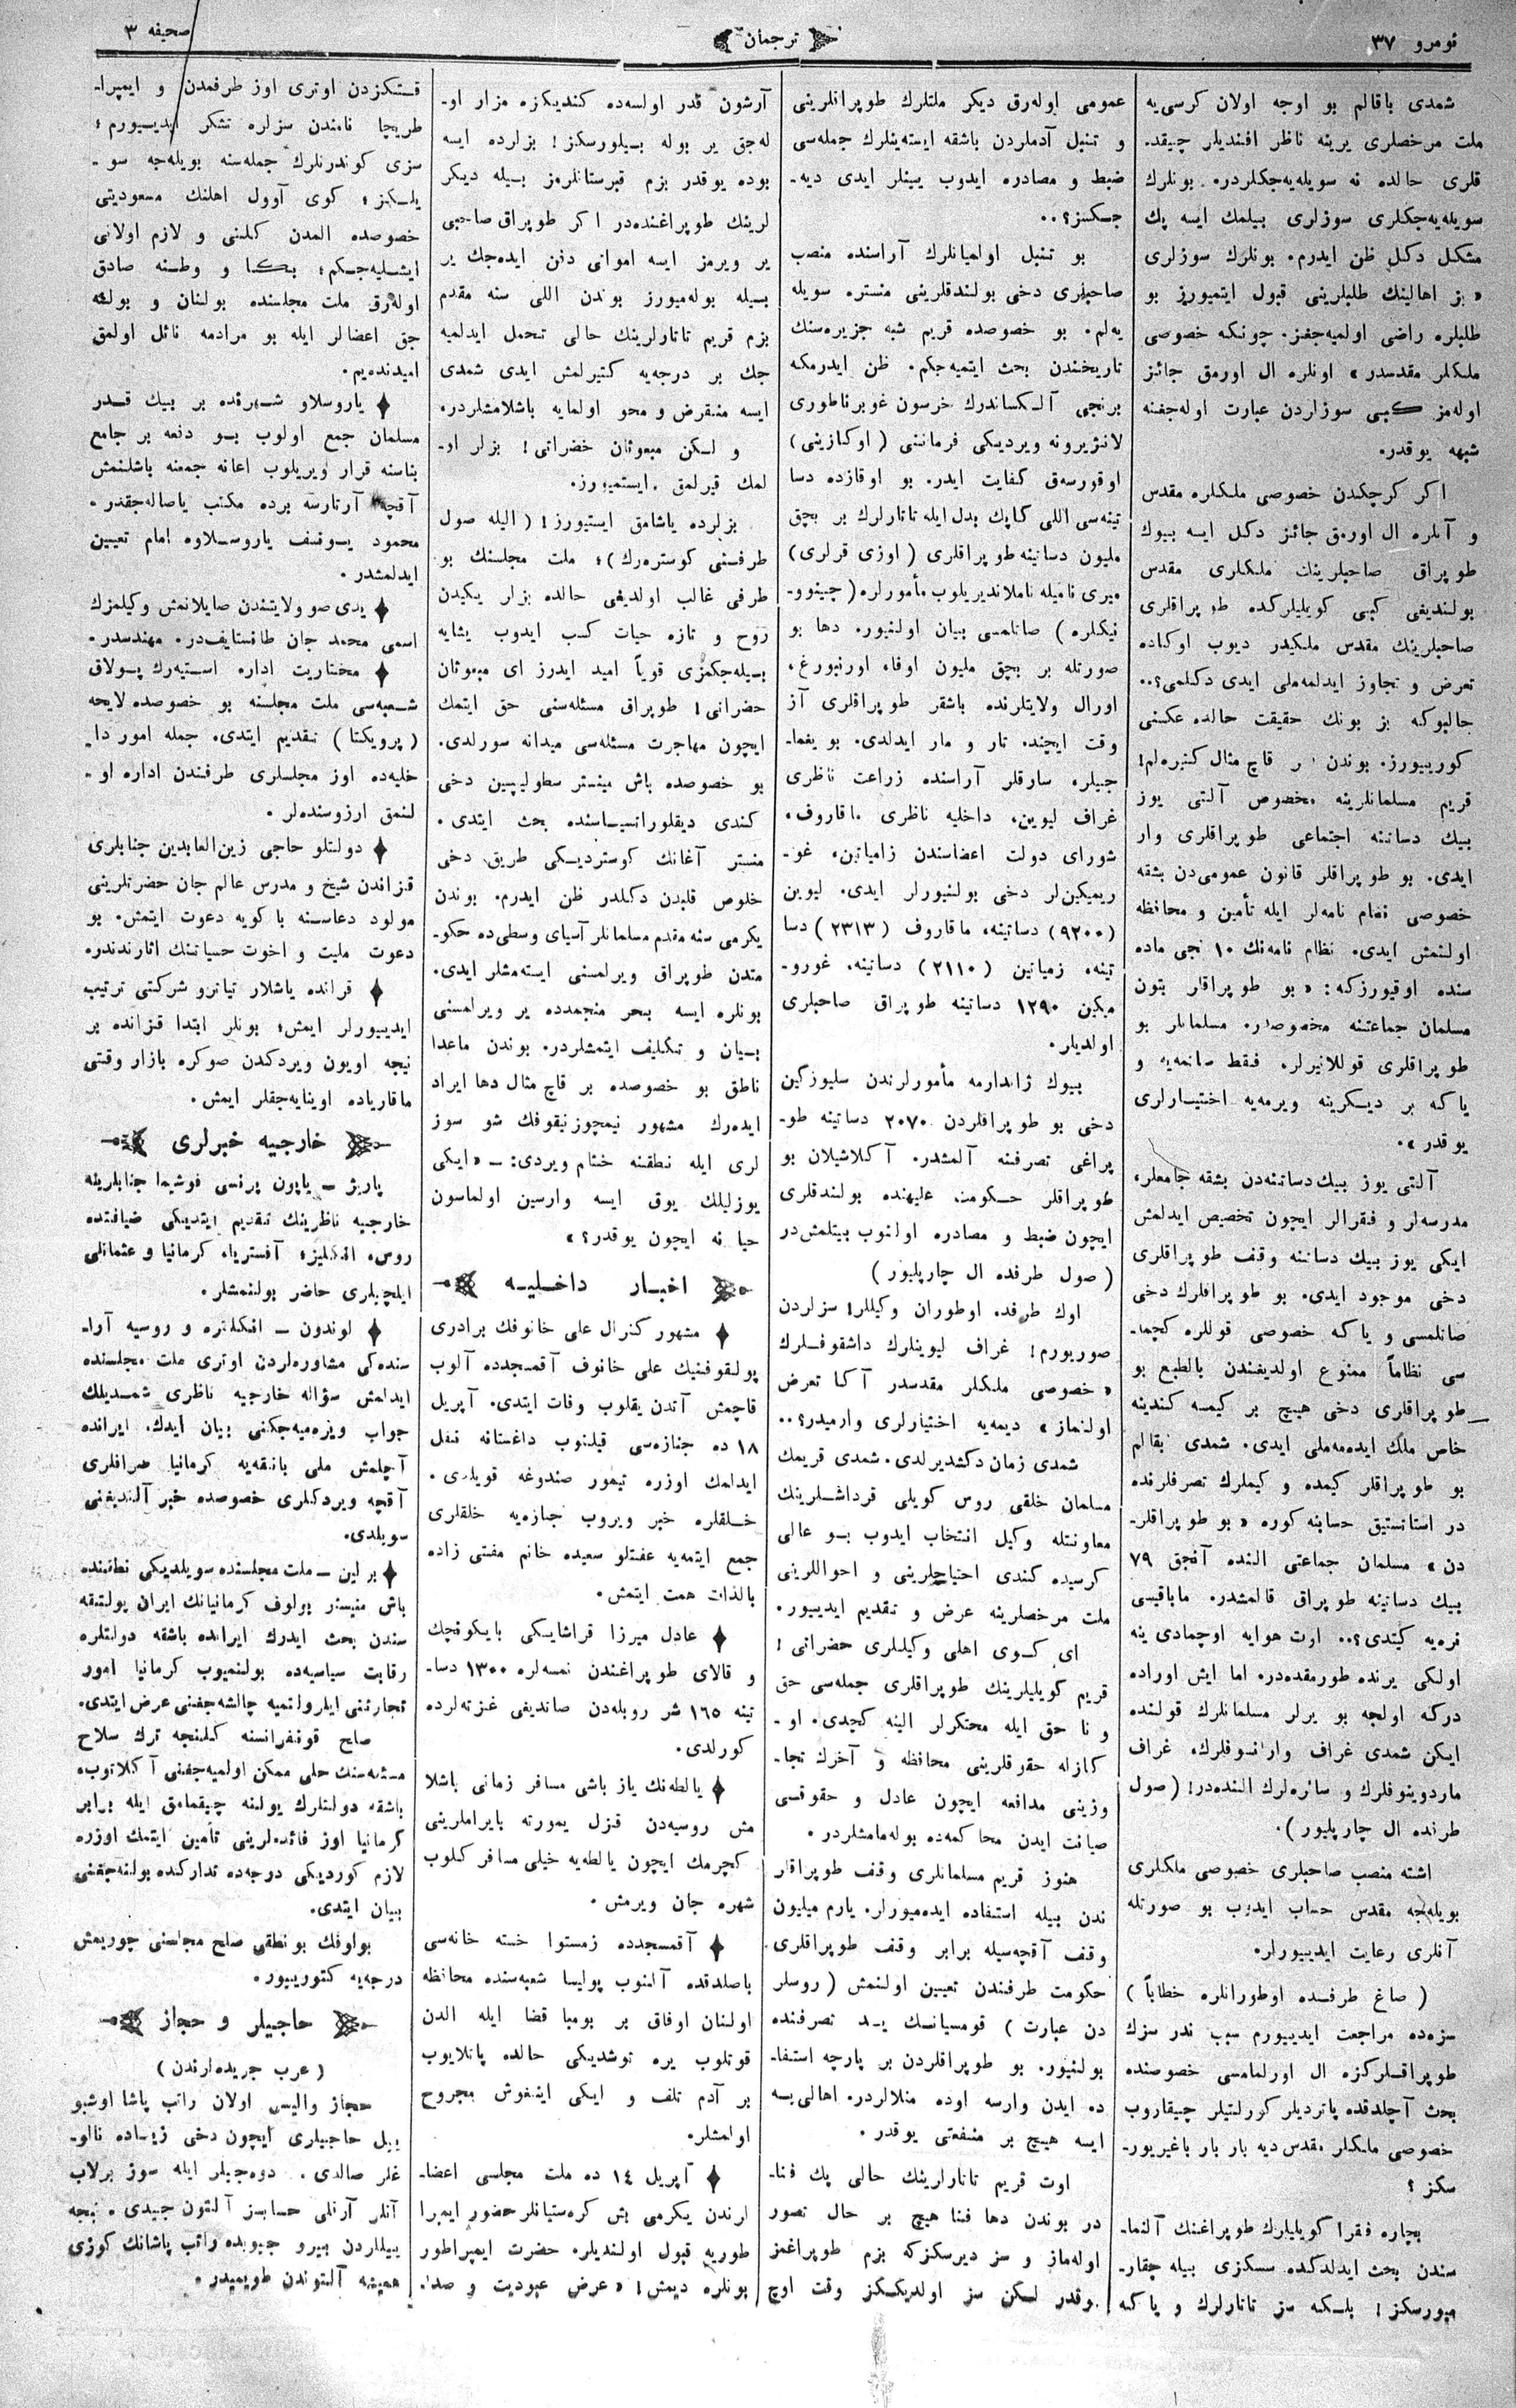 نومرو ٣٧
ترجمان
صحیفه ٣
شمدی باقالم بو اوجه اولان كرسی‌یه
ملت مرخصلری یرینه ناظر افندیلر چیقد-
قلری حالده نه سویله‌یه‌جكلردر. بونلرك
سویله‌یه‌جكلری سوزلری بیلمك ایسه پك
مشكل دكل ظن ایدرم. بونلرك سوزلری
« بز اهالینك طلبلرینی قبول ایتمیورز بو
طلبلره راضی اولمیه‌جغز. چونكه خصوصی
ملكلر مقدسدر » اونلره ال اورمق جائز
اوله‌مز كبی سوزلردن عبارت اوله‌جغنه
شبهه یوقدر.
اكر كرچكدن خصوصی ملكلره مقدس
و آنلره ال اورمق جائز دكل ایسه بیوك
طوپراق صاحبلرینك ملكلری مقدس
بولندیغی كبی كویلیلركده طوپراقلری
صاحبلرینك مقدس ملكیدر دیوب اوكاده
تعرض و تجاوز ایدلمه‌ملی ایدی دكلمی؟..
حالبوكه بز بونك حقیقت حالده عكسنی
كوریبورز. بوندن بر قاچ مثال كتیره‌لم!
قریم مسلمانلرینه مخصوص آلتی یوز
بیك دساتنه اجتماعی طوپراقلری وار
ایدی. بو طوپراقلر قانون عمومی‌دن بشقه
خصوصی نظام نامه‌لر ایله تأمین و محافظه
اولنمش ایدی. نظام نامه‌نك ١٠ نجی ماده
سنده اوقیورزكه: « بو طوپراقلر بتون
مسلمان جماعتنه مخصوصدر. مسلمانلر بو
طوپراقلری قوللانیرلر. فقط صاتمه‌یه و
یاكه بر دیكرینه ویرمه‌یه اختیارلری
یوقدر ».
آلتی یوز بیك دساتنه‌دن بشقه جامعلر،
مدرسه‌لر و فقرالر ایچون تخصیص ایدلمش
ایكی یوز بیك دساتنه وقف طوپراقلری
دخی موجود ایدی. بو طوپراقلرك دخی
صاتلمسی و یاكه خصوصی قوللره كچمه-
سی نظاماً ممنوع اولدیغندن بالطبع بو
طوپراقلری دخی هیچ بر كیمسه كندینه
خاص ملك ایده‌مه‌ملی ایدی. شمدی بقالم
بو طوپراقلر كیمده و كیملرك تصرفلرنده
در استاتستیق حسابنه كوره « بو طوپراقلر-
دن » مسلمان جماعتی النده آنجق ٧٩
بیك دساتینه طوپراق قالمشدر. ماباقیسی
نره‌یه كیتدی؟.. اوت هوایه اوچمادی ینه
اولكی یرنده طورمقده‌در. اما ایش اوراده
دركه اولجه بو یرلر مسلمانلرك قولنده
ایكن شمدی غراف وارانسوفلرك، غراف
ماردوینوفلرك و سائره‌لرك النده‌در! (صول
طرفده ال چارپلیور).
اشته منصب صاحبلری خصوصی ملكلری
بویله‌جه مقدس حساب ایدوب بو صورتله
آنلری رعایت ایدییورلر.
( صاغ طرفده اوطورانلره خطاباً )
سزه‌ده مراجعت ایدییورم سبب ندر سزك
طوپراقلركزه ال اورلمامسی خصوصنده
بحث آچلدقده پاتردیلر كورلتیلر چیقاروب
خصوصی ملكلر مقدس دیه بار بار باغیریور-
سكز ؟
بچاره فقرا كویلیلرك طوپراغنك آلنما-
سندن بحث ایدلدكده سسكزی بیله چقار-
میورسكز! بلكه سز تاتارلرك و یاكه
عمومی اوله‌رق دیكر ملتلرك طوپراقلرینی
و تنبل آدملردن باشقه ایسته‌ینلرك جمله‌سی
ضبط و مصادره ایدوب یینلر ایدی دیه-
جكسز؟..
بو تنبل اولمیانلرك آراسنده منصب
صاحبلری دخی بولندقلرینی منستره سویله
یه‌لم. بو خصوصده قریم شبه جزیره‌سنك
تاریخندن بحث ایتمیه‌جكم. ظن ایدرمكه
برنجی آلكساندرك خرسون غوبرناطوری
لانژیرونه ویردیكی فرماننی ( اوكازینی )
اوقورسه‌ق كفایت ایدر. بو اوقازده دسا
تینه‌سی اللی كاپك بدل ایله تاتارلرك بر بچق
ملیون دساتینه طوپراقلری ( اوزی قرلری )
میری نامیله ناملاندیریلوب مأمورلره ( چینوو-
نیكلره ) صاتلمسی بیان اولنیور. دها بو
صورتله بر بچق ملیون اوفا، اورنبورغ،
اورال ولایتلرنده باشقر طوپراقلری آز
وقت ایچنده تار و مار ایدلدی. بو یغما-
جیلر، سارقلر آراسنده زراعت ناظری
غراف لیوین، داخلیه ناظری ماقاروف،
شورای دولت اعضاسندن زامیاتین، غو-
ریمیكین‌لر دخی بولنیورلر ایدی. لیوین
(٩٢٠٠) دساتینه، ماقاروف (٢٣١٣) دسا
تینه، زمیاتین (٢١١٠) دساتینه، غورو-
میكین ١٢٩٠ دساتینه طوپراق صاحبلری
اولدیلر.
بیوك ژاندارمه مأمورلرندن سلیوزكین
دخی بو طوپراقلردن ٢٠٧٠ دساتینه طو-
پراغی تصرفنه آلمشدر. آكلاشیلان بو
طوپراقلر حكومت علیهنده بولندقلری
ایچون ضبط و مصادره اولنوب بیتلمش‌در
( صول طرفده ال چارپلیور )
اوك طرفده اوطوران وكیللر! سزلردن
صوریورم! غراف لیوینلرك داشقوفلرك
« خصوصی ملكلر مقدسدر آكا تعرض
اولنماز » دیمه‌یه اختیارلری وارمیدر؟..
شمدی زمان دكشدیرلدی. شمدی قریمك
مسلمان خلقی روس كویلی قرداشلرینك
معاونتله وكیل انتخاب ایدوب بو عالی
كرسیده كندی احتیاجلرینی و احواللرینی
ملت مرخصلرینه عرض و تقدیم ایدییور.
ای كوی اهلی وكیللری حضراتی!
قریم كویلیلرینك طوپراقلری جمله‌سی حق
و نا حق ایله محتكرلر الینه كچدی. او-
كازله حقوقلرینی محافظه و آخرك تجا-
وزینی مدافعه ایچون عادل و حقوقسی
صیانت ایدن محاكمه‌ده بوله‌مامشلردر.
هنوز قریم مسلمانلری وقف طوپراقلر
ندن بیله استفاده ایده‌میورلر. یارم میلیون
وقف آقچه‌سیله برابر وقف طوپراقلری
حكومت طرفندن تعیین اولنمش ( روسلر
دن عبارت ) قومسیانسك ید تصرفنده
بولنیور. بو طوپراقلردن بر پارچه استفا-
ده ایدن وارسه اوده منلالردر. اهالی‌یه
ایسه هیچ بر منفعتی یوقدر.
اوت قریم تاتارلرینك حالی پك فنا-
در بوندن دها فنا هیچ بر حال تصور
اوله‌ماز و سز دیرسكزكه بزم طوپراغمز
یوقدر لكن سز اولدیكگز وقت اوچ
آرشون قدر اولسه‌ده كندیكزه مزار او-
له‌جق یر بوله بیلورسكز! بزلرده ایسه
بوده یوقدر بزم قبرستانلرمز بیله دیكر
لرینك طوپراغنده‌در اكر طوپراق صاحبی
یر ویرمز ایسه امواتی دفن ایده‌جك یر
بیله بوله‌میورز بوندن اللی سنه مقدم
بزم قریم تاتارلرینك حالی تحمل ایدلمیه
جك بر درجه‌یه كتیرلمش ایدی شمدی
ایسه منقرض و محو اولمایه باشلامشلردر.
و لكن مبعوثان حضراتی! بزلر او-
لمك قیرلمق ایستمیورز.
بزلرده یاشامق ایستیورز! ( الیله صول
طرفنی كوستره‌رك )؛ ملت مجلسنك بو
طرفی غالب اولدیغی حالده بزلر یكیدن
روح و تازه حیات كسب ایدوب یشایه
بیله‌جكمزی قویاً امید ایدرز ای مبعوثان
حضراتی! طوپراق مسئله‌سنی حق ایتمك
ایچون مهاجرت مسئله‌سی میدانه سورلدی.
بو خصوصده باش مینستر سطولیپین دخی
كندی دیقلوراتسیاسنده بحث ایتدی.
منستر آغانك كوستردیكی طریق دخی
خلوص قلبدن دكلدر ظن ایدرم. بوندن
یكرمی سنه مقدم مسلمانلر آسیای وسطی‌ده حكو-
متدن طوپراق ویرلمسنی ایسته‌مشلر ایدی.
بونلره ایسه بحر منجمدده یر ویرلمسنی
بیان و تكلیف ایتمشلردر. بوندن ماعدا
ناطق بو خصوصده بر قاچ مثال دها ایراد
ایده‌رك مشهور نیمچوزنیقوفك شو سوز
لری ایله نطقنه ختام ویردی: – « ایكی
یوزلیلك یوق ایسه وارسین اولماسون
حیا نه ایچون یوقدر؟ »
اخبار داخلیه
مشهور كنرال علی خانوفك برادری
پولقوفنیك علی خانوف آقمسجدده آلوب
قاچمش آتدن یقلوب وفات ایتدی. آپریل
١٨ ده جنازه‌سی قیلنوب داغستانه نقل
ایدلمك اوزره تیمور صندوغه قویلدی.
خلقلره خبر ویروب جنازه‌یه خلقلری
جمع ایتمه‌یه عفتلو سعیده خانم مفتی زاده
بالذات همت ایتمش.
عادل میرزا قراشایسكی بایكونچك
و قالای طوپراغندن نمسه‌لره ١٣٠٠ دسا-
تینه ١٦٥ شر روبله‌دن صاندیغی غزته‌لرده
كورلدی.
یالطه‌نك یاز باشی مسافر زمانی باشلا
مش روسیه‌دن قزل یمورته بایراملرینی
كچرمك ایچون یالطه‌یه خیلی مسافر كلوب
شهره جان ویرمش.
آقمسجدده زمستوا خسته خانه‌سی
باصلدقده آلنوب پولیسا شعبه‌سنده محافظه
اولنان اوفاق بر بومبا قضا ایله الدن
قوتلوب یره توشدیكی حالده پاتلایوب
بر آدم تلف و ایكی اینغوش مجروح
اولمشلر.
آپریل ١٤ ده ملت مجلسی اعضا-
لرندن یكرمی بش كره‌ستیانلر حضور ایمپرا
طوریه قبول اولندیلر. حضرت ایمپراطور
بونلره دیمش! « عرض عبودیت و صدا-
قتكزدن اوتری اوز طرفمدن و ایمپرا-
طریچا نامندن سزلره تشكر ایدییورم؛
سزی كوندرنلرك جمله‌سنه بویله‌جه سو-
یلكز؛ كوی آوول اهلنك مسعودیتی
خصوصده المدن كلنی و لازم اولانی
ایشلیه‌جكم؛ بكا و وطنه صادق
اوله‌رق ملت مجلسنده بولنان و بولنه
جق اعضالر ایله بو مرادمه نائل اولمق
امیدنده‌یم.
یاروسلاو شهرنده بر بیك قدر
مسلمان جمع اولوب بو دفعه بر جامع
بناسنه قرار ویریلوب اعانه جمعنه باشلنمش
آقچه آرتارسه برده مكتب یاصاله‌جقدر.
محمود یوفف یاروسلاوه امام تعیین
ایدلمشدر.
یدی صو ولایتندن صایلانمش وكیلمزك
اسمی محمد جان طانستایف‌در. مهندسدر.
مختاریت اداره استیه‌رك پولاق
شعبه‌سی ملت مجلسنه بو خصوصده لایحه
( پرویكتا ) تقدیم ایتدی. جمله امور دا-
خلیه‌ده اوز مجلسلری طرفندن اداره او-
لنمق ارزوسنده‌لر.
دولتلو حاجی زین‌العابدین جنابلری
قزاندن شیخ و مدرس عالم جان حضرتلرینی
مولود دعاسنه باكویه دعوت ایتمش. بو
دعوت ملیت و اخوت حسیاتنك اثارندندر.
قزانده یاشلار تیاترو شركتی ترتیب
ایدییورلر ایمش؛ بونلر ابتدا قزانده بر
نیجه اویون ویردكدن صوكره بازار وقتی
ماقاریاده اوینایه‌جقلر ایمش.
خارجیه خبرلری
پاریژ – یاپون پرنسی فوشیما جنابلرینه
خارجیه ناظرینك تقدیم ایتدیكی ضیافتده
روس، انگلیز، آفستریا، كرمانیا و عثمانلی
ایلچیلری حاضر بولنمشلر.
لوندون – انگلتره و روسیه آرا-
سنده‌كی مشاوره‌لردن اوتری ملت مجلسنده
ایدلمش سؤاله خارجیه ناظری شمدیلك
جواب ویره‌میه‌جكنی بیان ایدك. ایرانده
آچلمش ملی بانقه‌یه كرمانیا صرافلری
آقچه ویردكلری خصوصده خبر آلندیغنی
سویلدی.
برلین – ملت مجلسنده سویلدیكی نطقنده
باش منیستر بولوف كرمانیانك ایران پولتقه
سندن بحث ایدرك ایرانده باشقه دولتلره
رقابت سیاسیه‌ده بولنمیوب كرمانیا امور
تجارتنی ایلرولتمیه چالشه‌جغنی عرض ایتدی.
صلح قونفرانسنه كلنجه ترك سلاح
مسئله‌سنك حلی ممكن اولمیه‌جغنی آكلاتوب،
باشقه دولتلرك یولنه چیقمامق ایله برابر
كرمانیا اوز فائده‌لرینی تأمین ایتمك اوزره
لازم كوردیكی درجه‌ده تداركده بولنه‌جغنی
بیان ایتدی.
بولوفك بو نطقی صلح مجلسنی چوریمش
درجه‌یه كتورییور.
حاجیلر و حجاز
( عرب جریده‌لرندن )
حجاز والیسی اولان راتب پاشا اوشبو
ییل حاجیلری ایچون دخی زیاده نالو-
غلر صالدی. دوه‌جیلر ایله سوز برلاب
آنلر آرقلی حسابسز آلتون جییدی. نیجه
ییللردن بیرو جیوبده راتب پاشانك كوزی
همیشه آلتوندن طویمیدر.